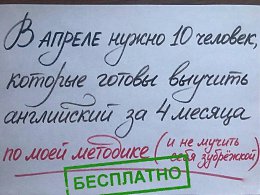 В АПРЕЛЕ нужно 10 человек,
которые готовы выучить
английский за 4 месяца
по моей методике (и не мучить
себя зубрёжкой)
БЕСПЛАТНО